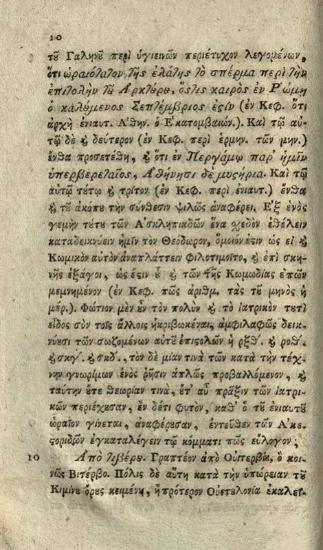 10
τῦ Γαληνῦ περὶ ὑγιεινῶν περιέτυχον λεγομένων,
ὅτι ὡραιότατον τῆς ἐλάτης τὸ σπέρμα περὶ τὴν
ἐπιτολὴν τῦ Ἀρκτύρυ, ὅςις καιρὸς ἐν Ῥώμῃ
ὁ καλύμενος Σεπτέμβριος ἐςὶν (ἐν Κεφ. ὅτι
ἀρχὴ ἐνιαυτ. Ἀθην. ὁ Ἑκατομβαιών.). Καὶ τῷ αὐ-
τῷ δὲ ϗ δεύτερον (ἐν Κεφ. περὶ ἑρμην. τῶν μην.)
ἔνθα προσετέθη, ϗ ὅτι ἐν Περγάμῳ παρ' ἡμῖν
ὑπερβερεταῖος, Ἀθήνησι δὲ μυςήρια. Καὶ τῷ
αὐτῷ τύτῳ ϗ τρίτον (ἐν Κεφ. περὶ ἐνιαυτ.) ἔνθα
ϗ τῦ ἀκόπυ τὴν σύνθεσιν ψιλῶς ἀναφέρει. Ἐξ ἑνὸς
γεμὴν τύτυ τῶν Ἀσκληπιαδῶν ἕνα χεδὸν ἐθέλειν
καταδεικνύειν ἡμῖν τὸν Θεόδωρον, ὅμοιον ἐςιν ὡς εἰ ϗ
Κωμικὸν αὐτὸν ἀναπλάττειν φιλοτιμοῖτο, ϗ ἐπὶ σκη-
νῆς ἐξάγοι, ὡς ἐςιν ὗ ϗ τῶν τῆς Κωμῳδίας ἐπῶν
μεμνημένον (ἐν Κεφ. πῶς ἀριθμ. τὰς τῦ μηνὸς ἡ
μέρ.). Φώτιον μὲν ἐν τὸν πολὺν ϗ τὸ ἰατρικὸν τυτὶ
εἶδος σὺν τοῖς ἄλλοις ἠκριβωκέναι, ἀμφιλαφῶς δεικ-
νύυσι τῶν σωζομένων αὐτῦ ἐπιςολῶν ἡ ρξθ. ϗ ροθ.
ϗ σκγ. ϗ σκδ. τὸν δὲ μίαν τινὰ τῶν κατὰ τὴν τέχ-
νην γνωρίμων ἑνὸς ῥῆσιν ἁπλῶς προβαλλόμενον, ϗ
ταύτην ὔτε θεωρίαν τινὰ, ὔτ' αὖ πρᾶξιν τῶν ἰατρι-
κῶν περιέχυσαν, ἐν δέτι φυτὸν, καθ' ὃ τῦ ἐνιαυτῦ
ὡραῖον γίνεται, ἀναφέρυσαν, ἐντεῦθεν τῶν Ἀκε-
ςοριδῶν ἐγκαταλέγειν τῷ κόμματι πῶς εὔλογον;
10 Ἀπὸ λιβέρυ. Γραπτέον ἀπὸ Οὐιτερβίυ, ὁ κοι-
νῶς Βιτέρβο. Πόλις δὲ αὕτη κατὰ τὴν ὑπώρειαν τῦ
Κιμίνυ ὄρυς κειμένη, ἣ πρότερον Οὐετυλονία ἐκαλεῖ-